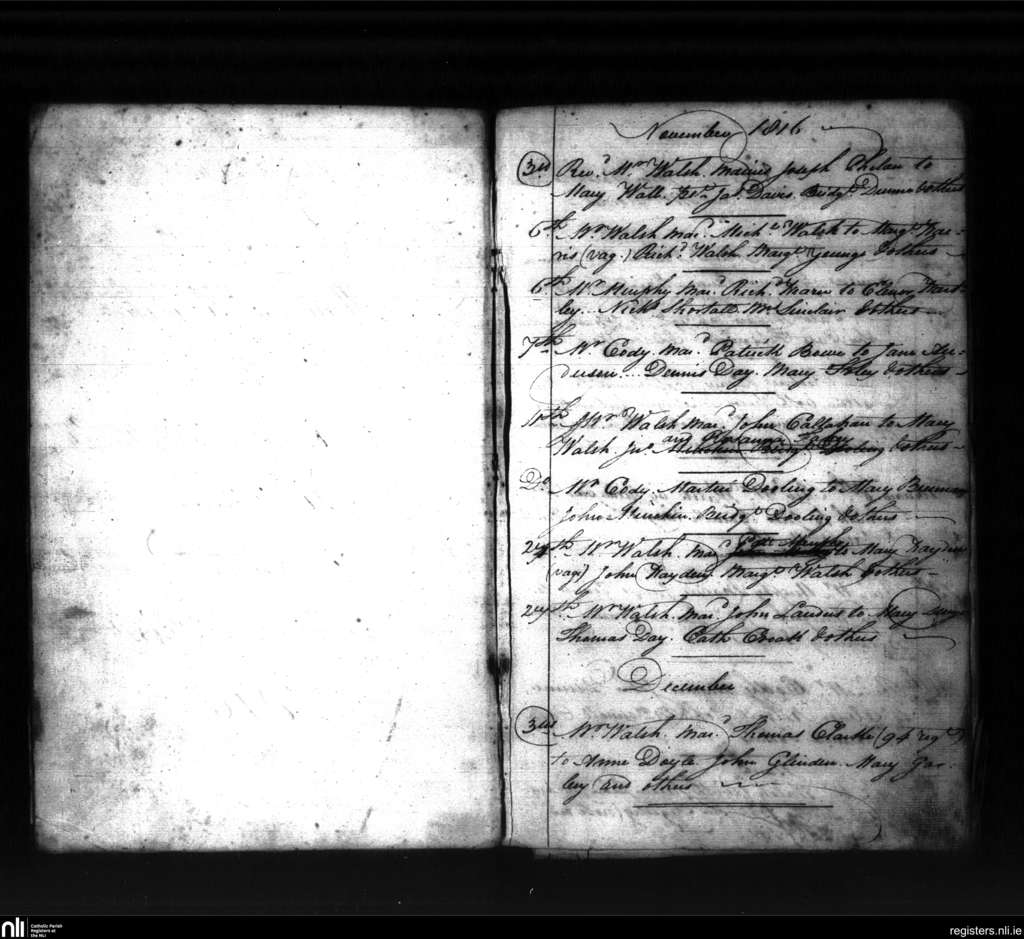 November 1816
3rd Revd. Mr. Walsh. Married Joseph Phelan to
Mary Wall. Jas. Davis. Bridgt. Dunne & others
6th Mr. Walsh mard. Michl. Walsh to Margt.
(vag.) Richd. Walsh Margt. & others
6th Mr. Murphy Mard. Richd. to Elenor
Nichs. Shortall. Mr. Sinclair & others
7th Mr. Cody. Mard. Patrick Bowe to Jane
Dennis Day. Mary & others
11th Mr. Walsh Mard. John Callahan to Mary
and
Walsh. Jno. & others
Do. Mr. Cody. Martin Dooling to Mary Brennan
John Minchin. Bridgt. Dooling & others
Murphy
24th Mr. Walsh. Mard. to Mary Hayden
(vag) John Hayden. Margt. Walsh & others
24th. Mr. Walsh. Mard. John Landers to Mary
Thomas Day. Cath & others
December
3rd Mr. Walsh. Mard. Thomas Clarke (94 regt.)
to Anne Doyle. John Glinden. Mary Gar-
ley and others
nli Catholic Parish
Registers at
the NLI
registers.nli.ie